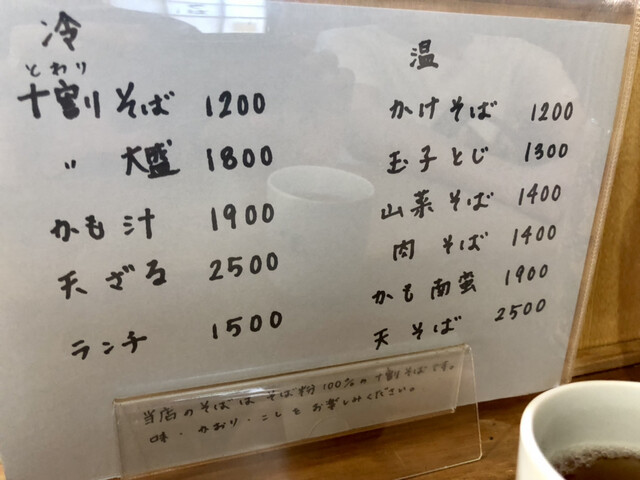 冷
とわり
十割りそば 1200
〃 大盛 1800
かも汁 1900
天ざる 2500
ランチ 1500
温
かけそば 1200
玉子とじ 1300
山菜そば 1400
肉そば 1400
かも南蛮 1900
天そば 2500
当店のそばはそば粉100%の十割そばです。
味・かおり・こしをお楽しみください。